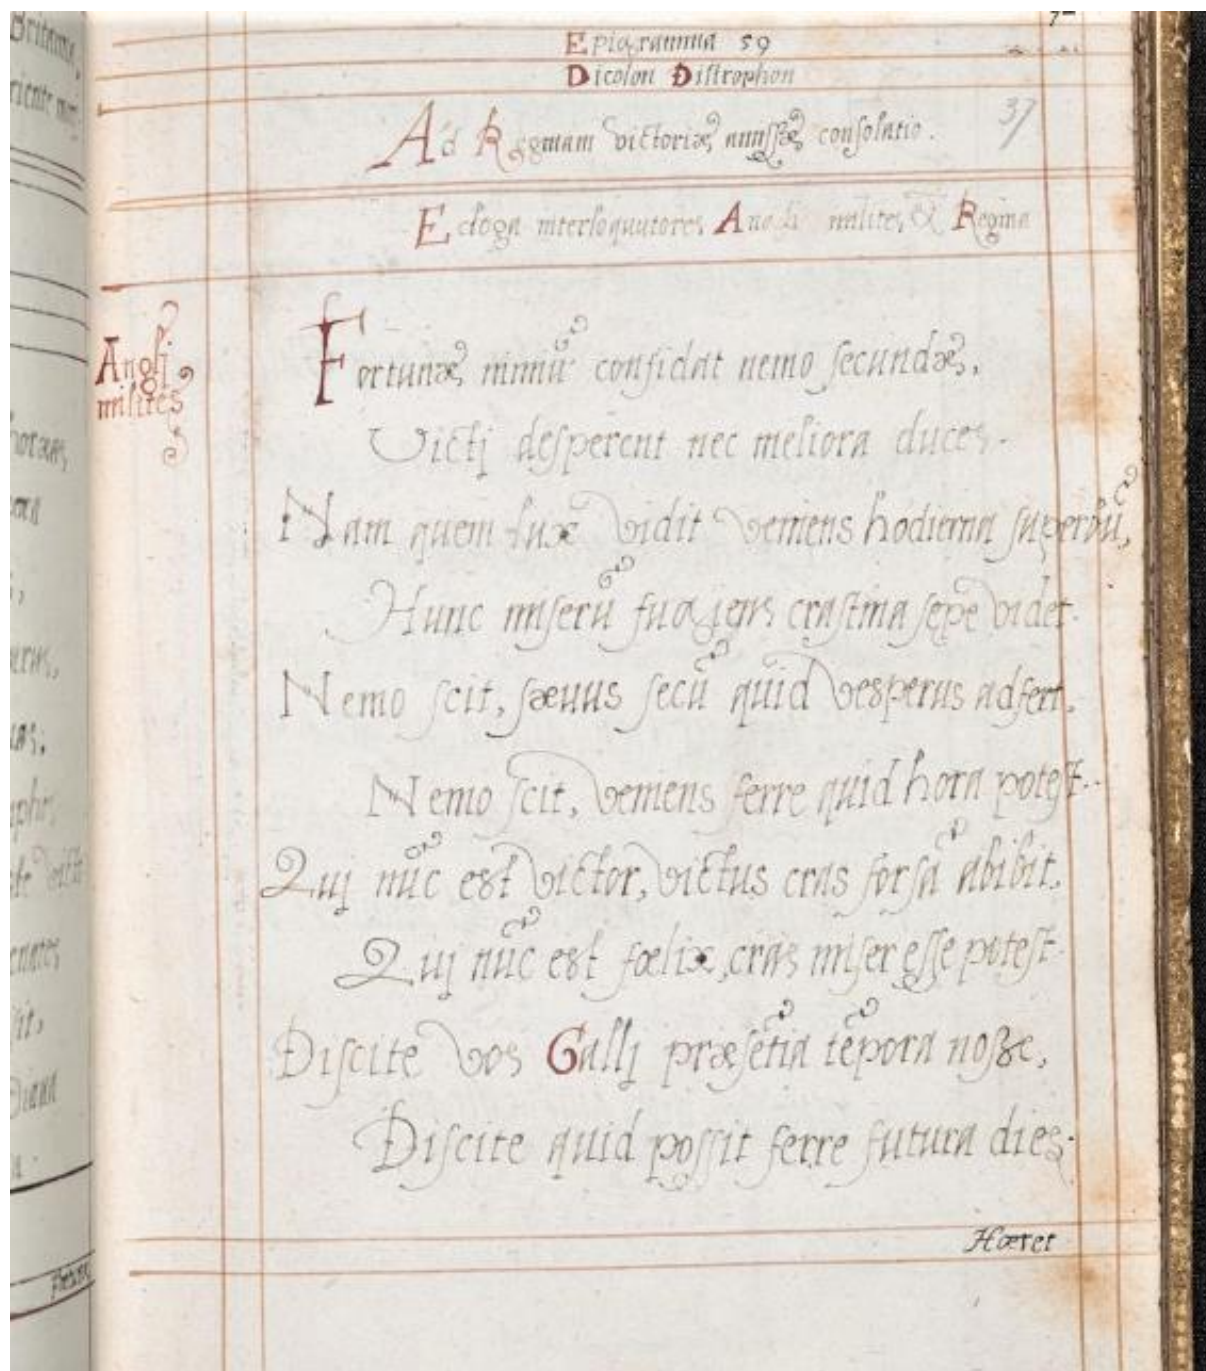 Epigramma 59
Dicolon Distrophon
37
Ad Reginam victoriæ amissæ consolatio.
Ecloga interloquutores Angli milites, & Regina
Anglj
milites
Fortunæ nimiũ confidat nemo secundæ,
Victj desperent nec meliora duces.
Nam quem luxe vidit veniens hodierna supervũ,
Hunc miserũ fugiens crastina sępe videt.
Nemo scit, sæuus secũ quid vesperus adfert,
Nemo scit, veniens ferre quid hora potest.
Quj nũc est victor, victus cras forsã abibit,
Quj nũc est fœlix, cras miser esse potest.
Discite vos Gallj præsẽtia tẽpora noße,
Discite quid possit ferre futura dies.
Hæret